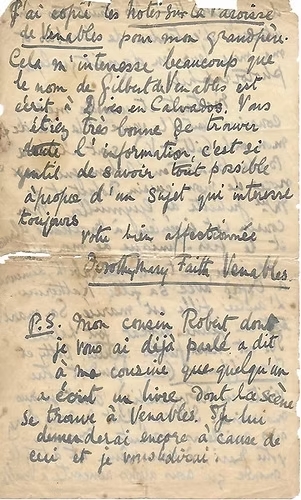 J'ai copié les notes sur la Paroisse
de Venables pour mon grandpère.
Cela m'interesse beaucoup que
le nom de Gilbert de Venables est
écrit à Dives en Calvados. Vous
étiez très bonne de trouver
toute l'information, c'est si
gentil de savoir tout possible
àpropos d'un sujet qui interesse
toujours
votre bien affectionnée
Dorothy Mary Faith Venables.
P.S. Mon cousin Robert dont
je vous ai déjà parlé a dit
à ma cousine que quelqu'un
a écrit un livre dont la scène
se trouve à Venables. Je lui
demanderai encore à cause de
ceci et je vous dirai.